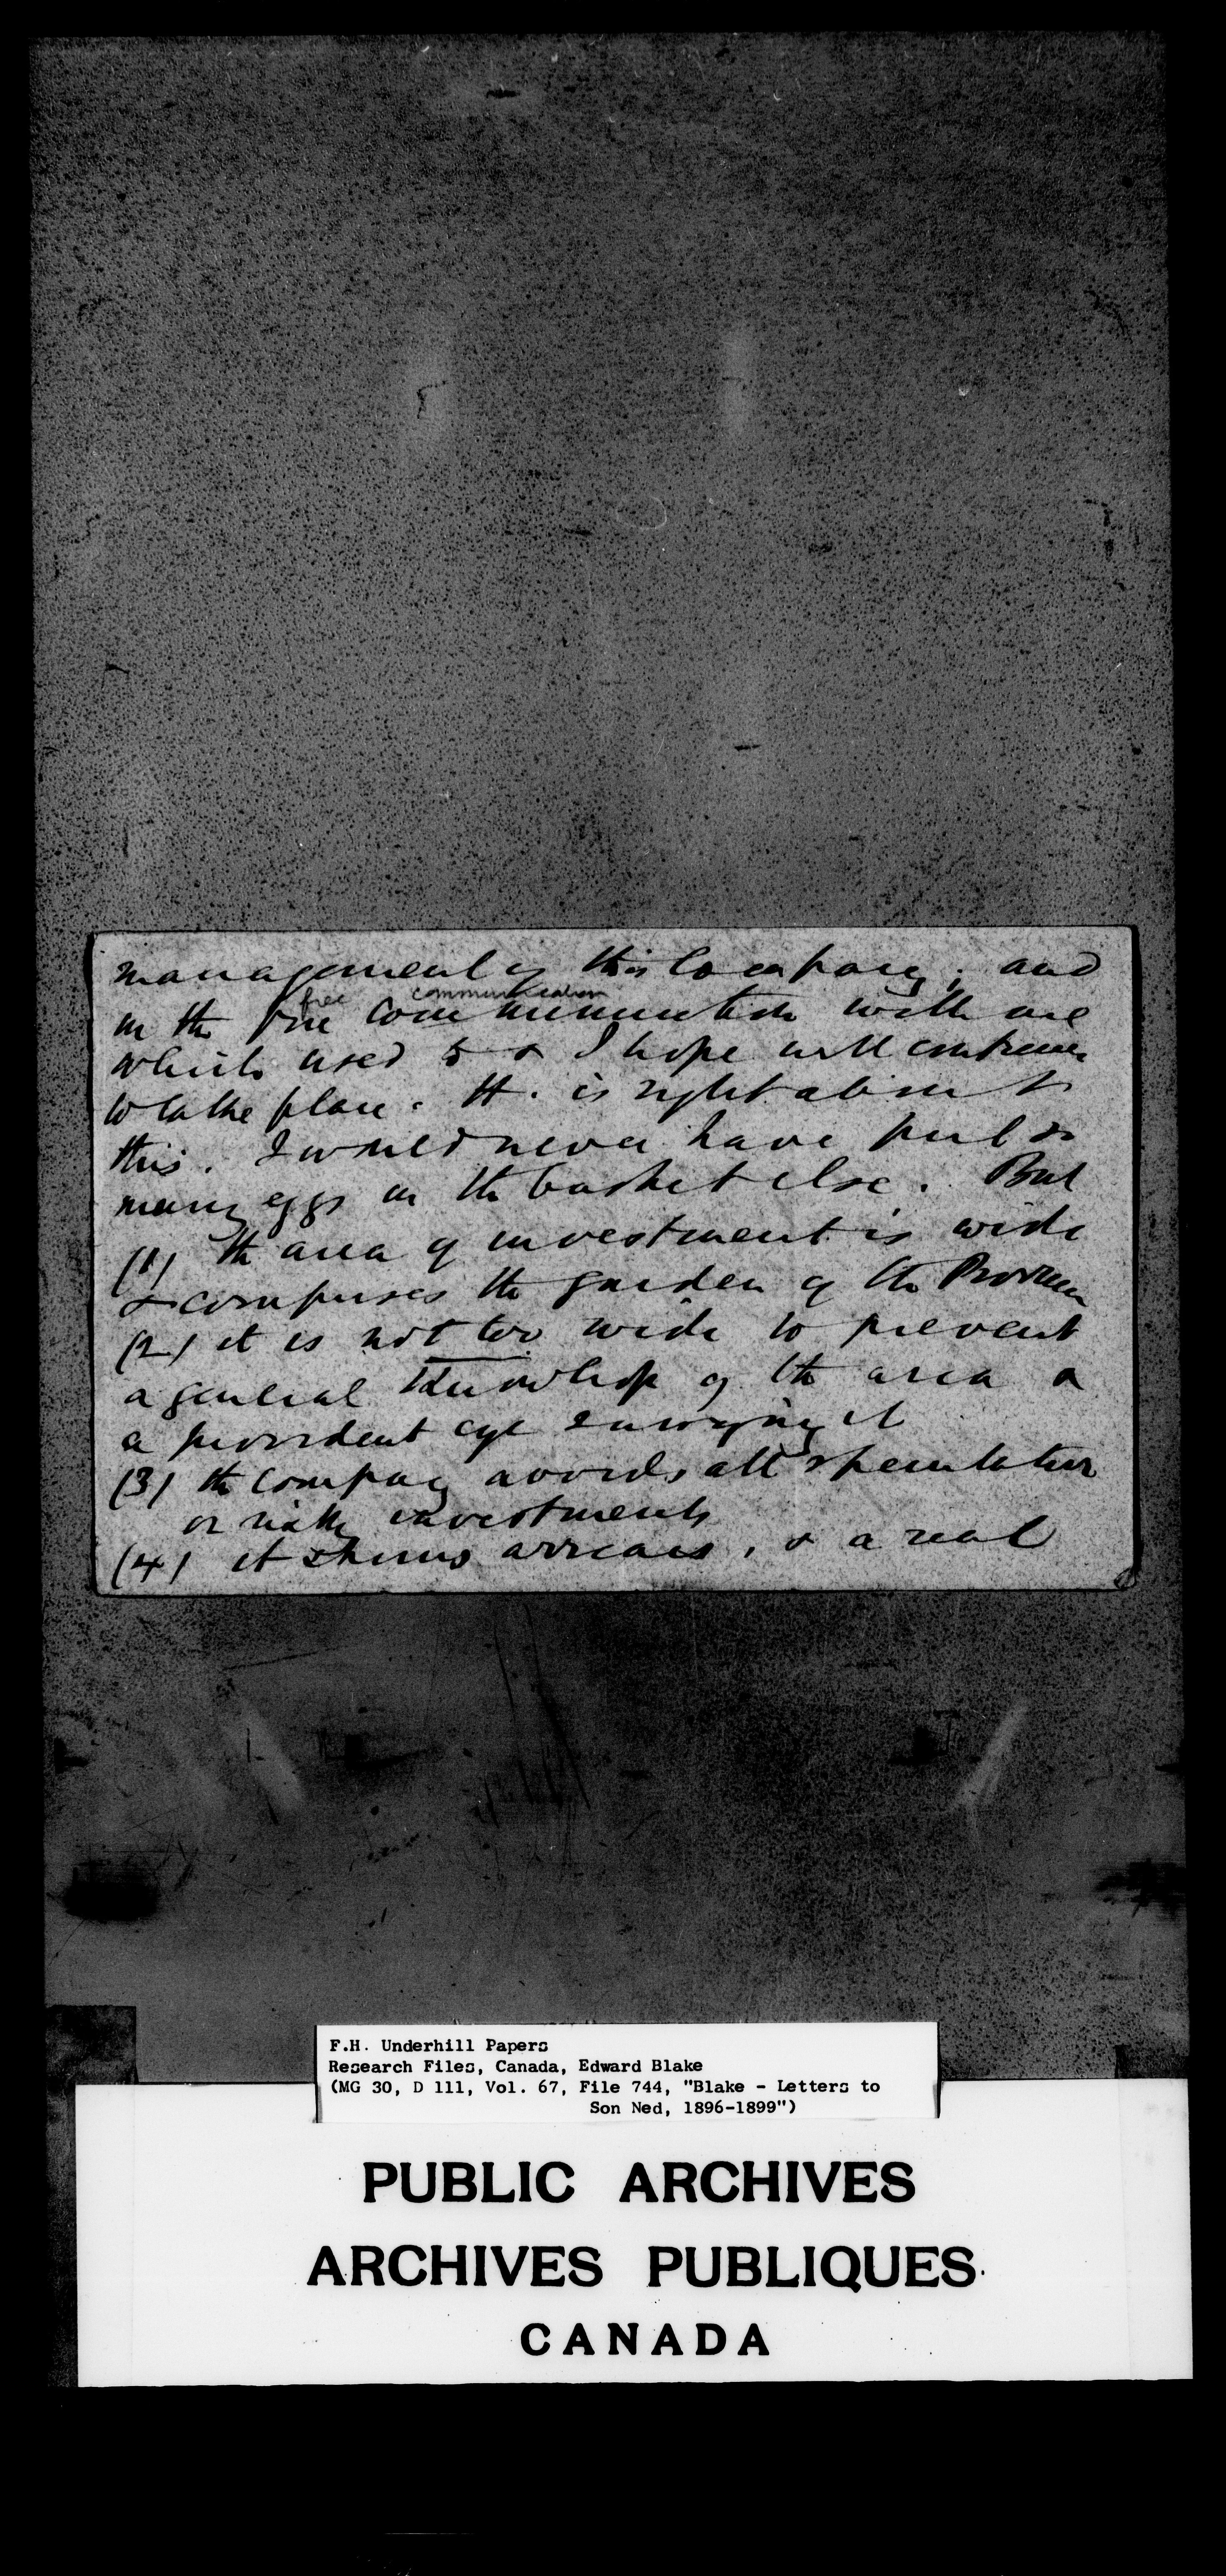 management of this Company; and
free communication
in the free communication with me
which used to & I hope will continue
to take place. H. is right about
this. I would never have put so
many eggs in the basket else. But
(1) the area of investment is wide
& comprises the garden of the Province
(2) it is not too wide to prevent
a general knowledge of the area &
a provident eye surveying it
(3) the company avoids all speculative
or risky investments
(4) it shows arrears, & a real
F.H. Underhill Papers
Research Files, Canada, Edward Blake
(MG 30, D 111, Vol. 67, File 744, "Blake - Letters to
Son Ned, 1896-1899")
PUBLIC ARCHIVES
ARCHIVES PUBLIQUES
CANADA